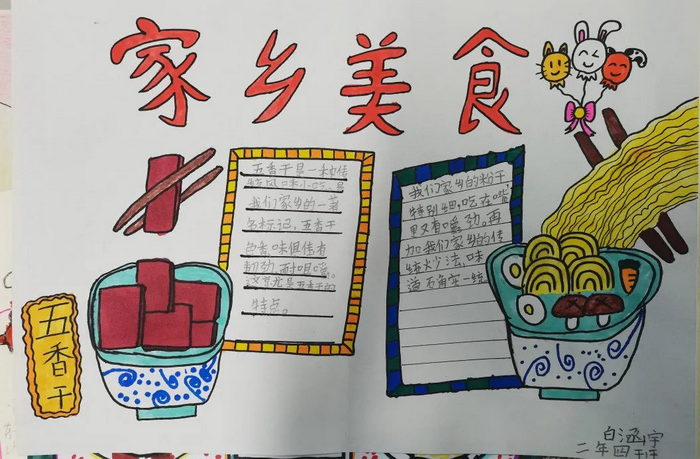 家乡美食
五香干是一种传
统风味小吃,是
我们家乡的一著
名标记,五香干
色香味俱佳有
韧劲,耐咀嚼。
这才是五香干的
特点。
我们家乡的粉干
特别细,吃在嘴
里又有嚼劲。再
加我们家乡的传
统炒法,味
道
五香干
白涵宇
二年四班